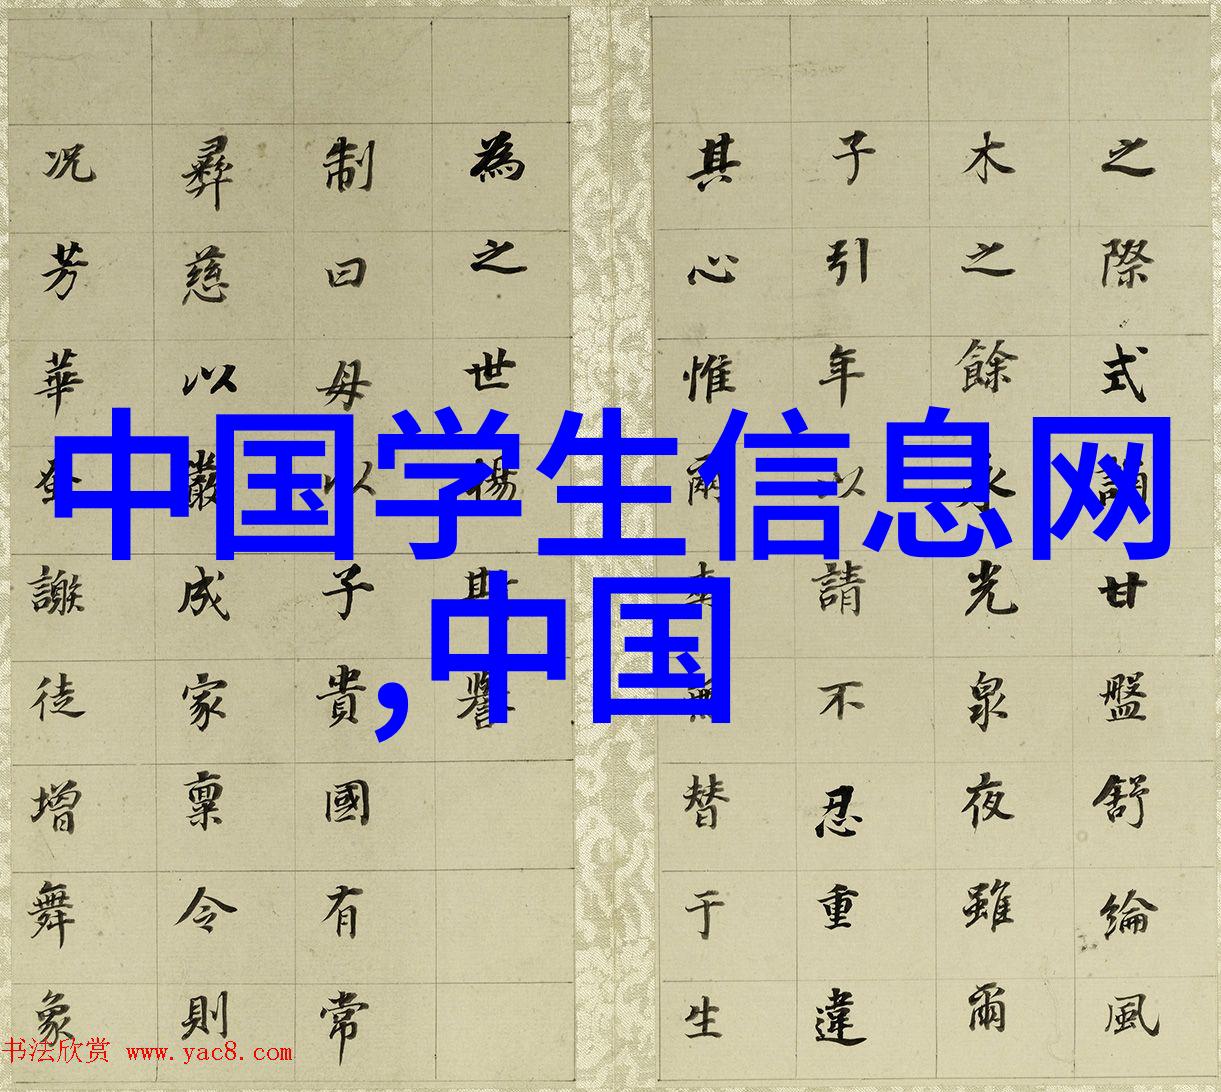 中国学生信息网
,中国
之際式甘盤舒綸風
木之餘永光泉夜雖爾
子引年以請不忍重違
其心惟爾無替于生
為之世斯譽
制曰母以子貴國有常
彝慈以嚴成家稟令則
况芳華蚤謝徒增舞象
书法欣赏 www.yac8.com